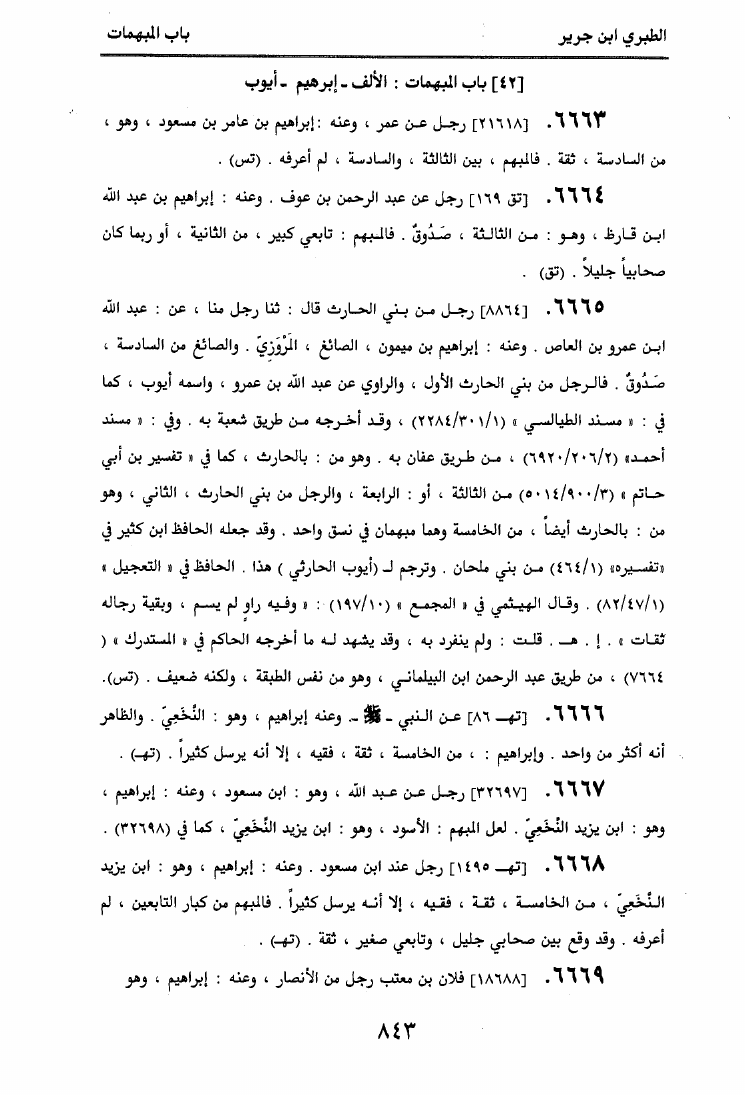 الطبري ابن جرير
باب المبهمات
[٤٢] باب المبهمات : الألف ـ إبرهيم ـ أيوب
٦٦٦٣. [٢١٦١٨] رجل عن عمر ، وعنه :إبراهيم بن عامر بن مسعود ، وهو ،
من السادسة ، ثقة . فالمبهم ، بين الثالثة ، والسادسة ، لم أعرفه . (تس) .
٦٦٦٤. [تق ١٦٩] رجل عن عبد الرحمن بن عوف . وعنه : إبراهيم بن عبد الله
ابن قارظ ، وهو : من الثالثة ، صَدُوقٌ . فالمبهم : تابعي كبير ، من الثانية ، أو ربما كان
صحابياً جليلاً . (تق) .
٦٦٦٥. [٨٨٦٤] رجل من بني الحارث قال : ثنا رجل منا ، عن : عبد الله
ابن عمرو بن العاص . وعنه : إبراهيم بن ميمون ، الصائغ ، المَرْوَزِيّ . والصائغ من السادسة ،
صَدُوقٌ . فالرجل من بني الحارث الأول ، والراوي عن عبد الله بن عمرو ، واسمه أيوب ، كما
في : « مسند الطيالسي » (٢٢٨٤/٣٠١/١) ، وقد أخرجه من طريق شعبة به . وفي : « مسند
أحمد» (٦٩٢٠/٢٠٦/٢) ، من طريق عفان به . وهو من : بالحارث ، كما في « تفسير بن أبي
حاتم » (٥٠١٤/٩٠٠/٣) من الثالثة ، أو : الرابعة ، والرجل من بني الحارث ، الثاني ، وهو
من : بالحارث أيضاً ، من الخامسة وهما مبهمان في نسق واحد . وقد جعله الحافظ ابن كثير في
«تفسيره» (٤٦٤/١) من بني ملحان . وترجم لـ (أيوب الحارثي ) هذا . الحافظ في « التعجيل »
(٨٢/٤٧/١) . وقال الهيثمي في « المجمع » (١٩٧/١٠) : « وفيه راوٍ لم يسم ، وبقية رجاله
ثقات » . إ . هـ . قلت : ولم ينفرد به ، وقد يشهد له ما أخرجه الحاكم في « المستدرك » (
٧٦٦٤) ، من طريق عبد الرحمن ابن البيلماني ، وهو من نفس الطبقة ، ولكنه ضعيف . (تس).
٦٦٦٦. [تهـ ٨٦] عن النبي ـ ﷺ ـ. وعنه إبراهيم ، وهو : النَّخَعِيّ . والظاهر
أنه أكثر من واحد . وإبراهيم : ، من الخامسة ، ثقة ، فقيه ، إلا أنه يرسل كثيراً . (تهـ) .
٦٦٦٧. [٣٢٦٩٧] رجل عن عبد الله ، وهو : ابن مسعود ، وعنه : إبراهيم ،
وهو : ابن يزيد النَّخَعِيّ . لعل المبهم : الأسود ، وهو : ابن يزيد النَّخَعِيّ ، كما في (٣٢٦٩٨) .
٦٦٦٨. [تهـ ١٤٩٥] رجل عند ابن مسعود . وعنه : إبراهيم ، وهو : ابن يزيد
النَّخَعِيّ ، من الخامسة ، ثقة ، فقيه ، إلا أنه يرسل كثيراً . فالمبهم من كبار التابعين ، لم
أعرفه . وقد وقع بين صحابي جليل ، وتابعي صغير ، ثقة . (تهـ) .
٦٦٦٩. [١٨٦٨٨] فلان بن معتب رجل من الأنصار ، وعنه : إبراهيم ، وهو
٨٤٣